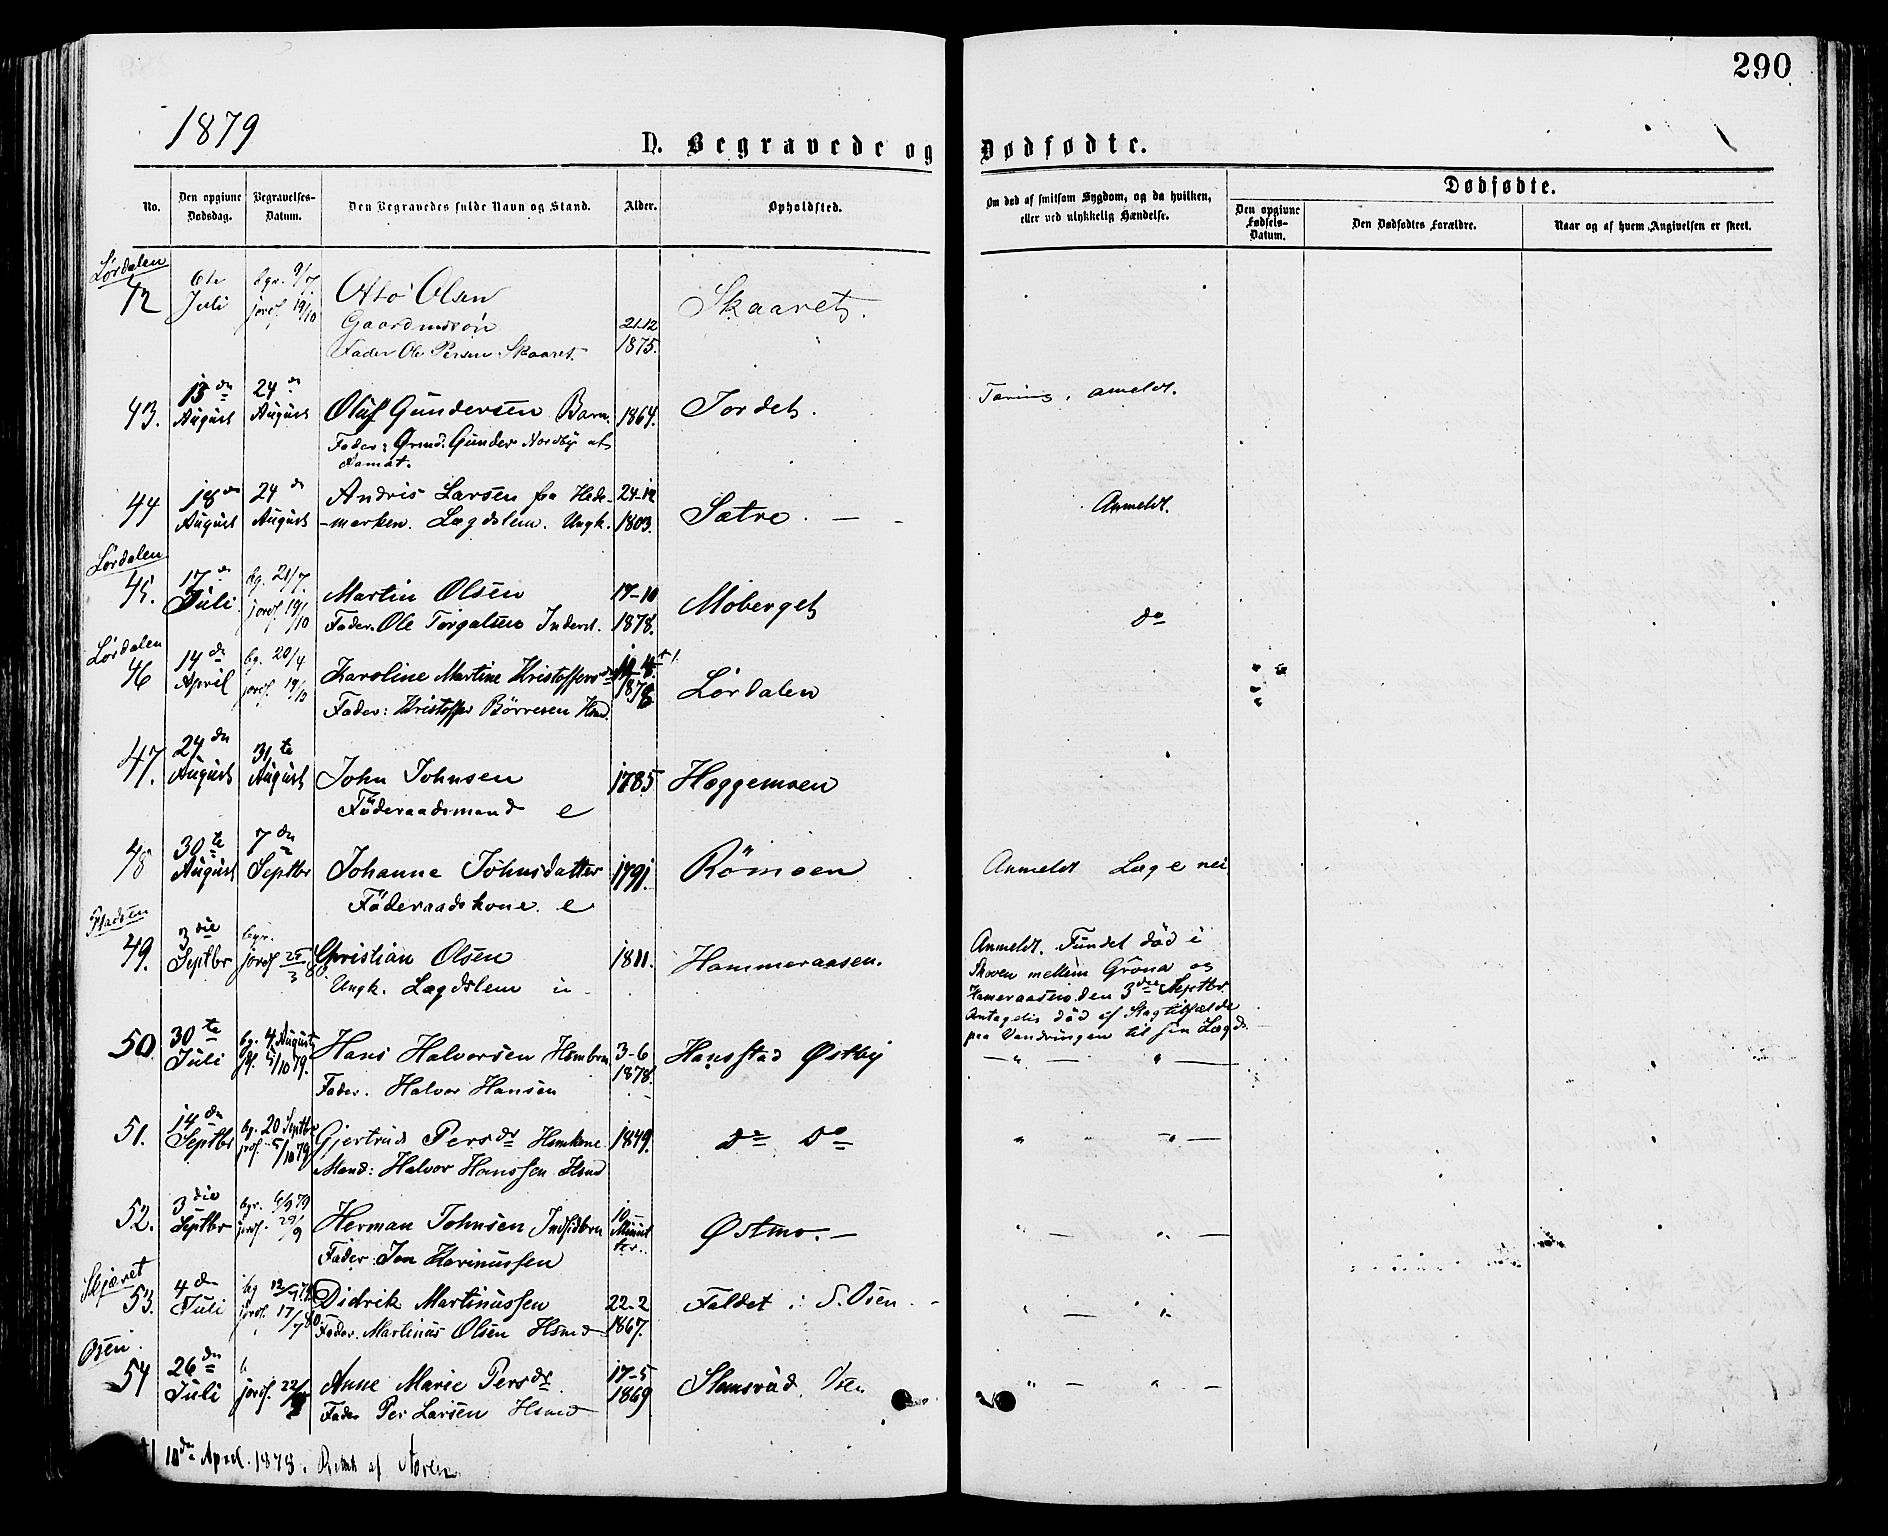 290
1879
D. Begravede og Dødfødte.
No.
Den opgivne Dødsdag.
Begravelses-Datum.
Den Begravedes fulde Navn og Stand.
Alder.
Opholdsted.
Om død af smitsom Sygdom, og da hvilken, eller ved ulykkelig Hændelse.
Dødfødte.
Den opgivne Fødsels-Datum.
Den Dødfødtes Forældre.
Naar og af hvem Angivelsen er skeet.
Lørdalen
42 6te Juli bgr. 9/7 jordf 19/10 Olsen 21-12 1875. Skaaret.
Fader Ole Persen Skaaret.
43. 13de August 24de August Oluf Gundersen Barn. 1864. Jordet. anmeldt.
Fader: Grmd. Gunder Nordby af
44 18de August 24de August Andris Larsen fra Hede- 24-12 1803. Sætre. Anmeldt.
-marken. Lægdslem. Ungk.
Lørdalen
45. 17de Juli bg. 21/7 jordf 19/10 Martin Olsen 17-10 1878. Moberget do
Fader. Ole Torgalsen Inderst.
Lørdalen
46 14de April bg. 20/4 jordf 19/10 Karoline Martine Kristoffersdr Lørdalen
Fader: Kristoffer Börresen Hsmd.
47. 24de August 31te August John Johnsen 1785 Hæggemoen
Föderaadsmand e
48 30te August 7de Septbr Johanne Johnsdatter 1791. Römoen Anmeldt Læge nei
Föderaadskone. e
Pladsen
49. 3die Septbr bgr. jordf 25/3 80 Christian Olsen 1811. Hammeraasen. Anmeldt. Fundet död i
Ungk. Lægdslem u
Skoven mellem Gröna og
den 3die Septbr.
Antagelig död af Slagtilfælde
paa Vandringen til sin Lægd.
50. 30te Juli bg. 4 August 5/10 79. Hans Halvorsen Hsmbrn 3-6 1878. Hansstad Østby — " — " —
Fader. Halvor Hansen
51. 14de Septbr bg. 20 Septbr jordf. 5/10 79 Gjertrud Persdr Hsmkone 1849. Do Do " " —
Mand: Halvor Hanssen Hsmd
52. 3die Septbr bgr. 6/9 79 jordf. Herman Johnsen Indsidbrn 10 Minutter. Østmo. — " — " —
Fader: Jon Karinussen
Skjæret
53. 4de Juli bg jordf. 17/7 80 Didrik Martinussen 22-2 1867. Faldet i S. Osen. " — "
Fader. Martinus Olsen Hsmd
Osen.
54 26de Juli jordf. Anne Marie Persdr. 17-5 1869 Osen " — " —
Fader Per Larsen Hsmd
10de April. 1878.